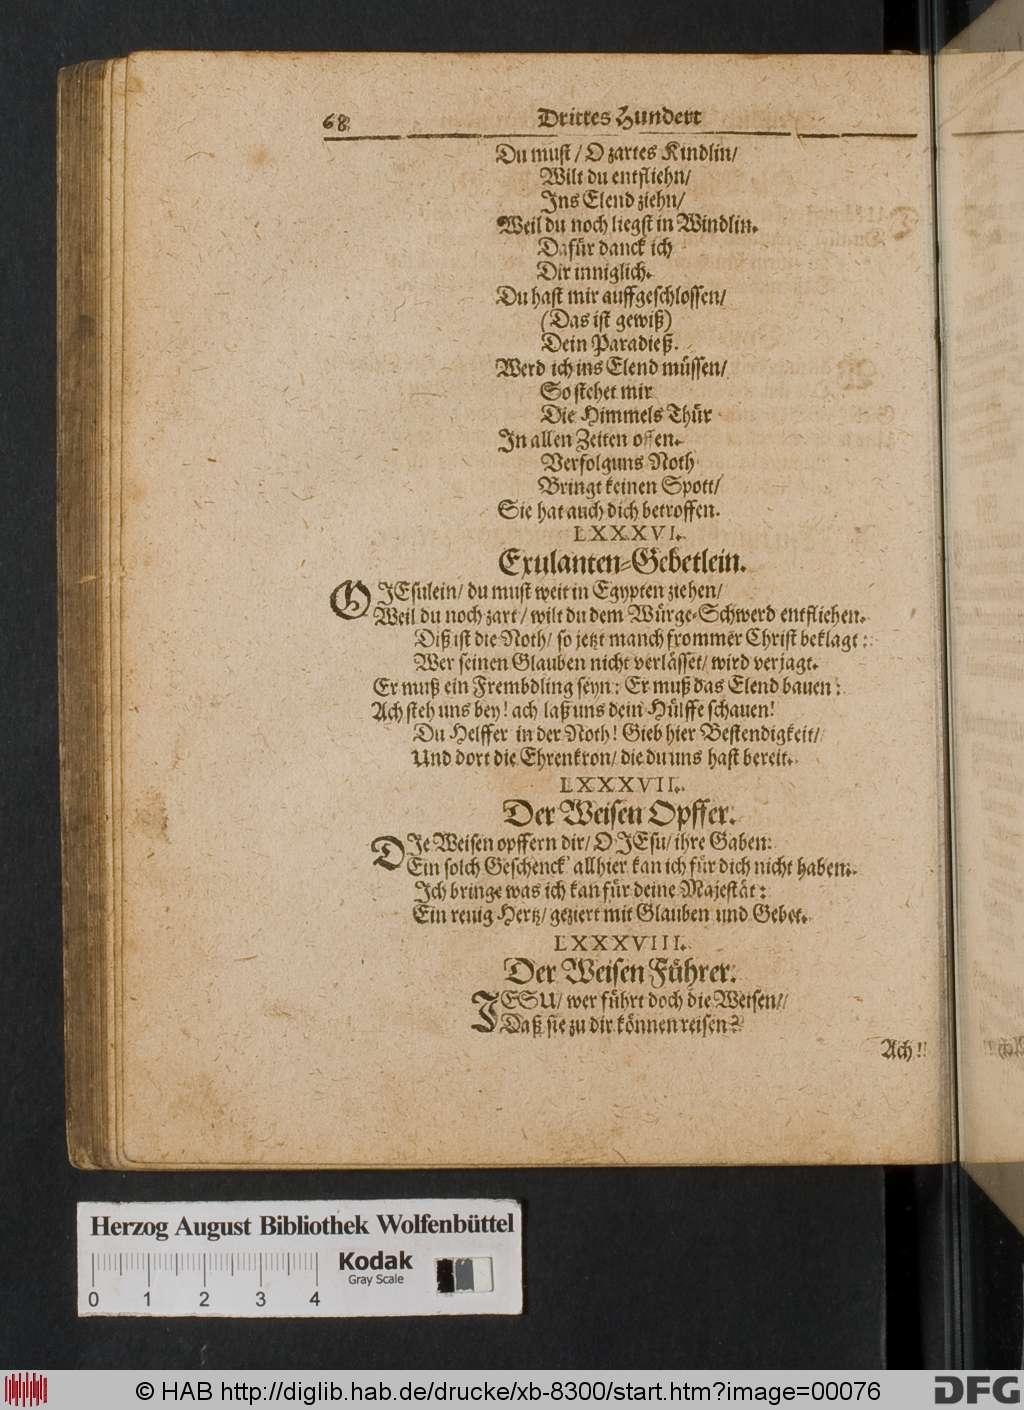 68 Drittes Hundert
Du must / O zartes Kindlin/
Wilt du entfliehn/
Ins Elend ziehn/
Weil du noch liegst in Windlin.
Dafür danck ich
Dir inniglich.
Du hast mir auffgeschlossen/
(Das ist gewiß)
Dein Paradieß.
Werd ich ins Elend müssen/
So stehet mir
Die Himmels Thür
In allen Zeiten offen.
Verfolguns Noth
Bringt keinen Spott/
Sie hat auch dich betroffen.
LXXXVI.
Exulanten-Gebetlein.
O JEsulein/ du must weit in Egypten ziehen/
Weil du noch zart / wilt du dem Würge-Schwerd entfliehen.
Diß ist die Noth/ so jetzt manch frommer Christ beklagt:
Wer seinen Glauben nicht verlässet/ wird verjagt.
Er muß ein Frembdling seyn: Er muß das Elend bauen:
Ach steh uns bey! ach laß uns dein Hülffe schauen!
Du Helffer in der Noth! Gieb hier Bestendigkeit/
Und dort die Ehrenkron/ die du uns hast bereit.
LXXXVII.
Der Weisen Opffer.
DJe Weisen opffern dir/ O JEsu/ ihre Gaben:
Ein solch Geschenck' allhier kan ich für dich nicht haben:
Ich bringe was ich kan für deine Majestät:
Ein reuig Hertz/ geziert mit Glauben und Gebet.
LXXXVIII.
Der Weisen Führer.
JESU/ wer führt doch die Weisen/
Daß sie zu dir können reisen?
Ach!
Herzog August Bibliothek Wolfenbüttel
Kodak
Gray Scale
0 1 2 3 4
© HAB http://diglib.hab.de/drucke/xb-8300/start.htm?image=00076
DFG